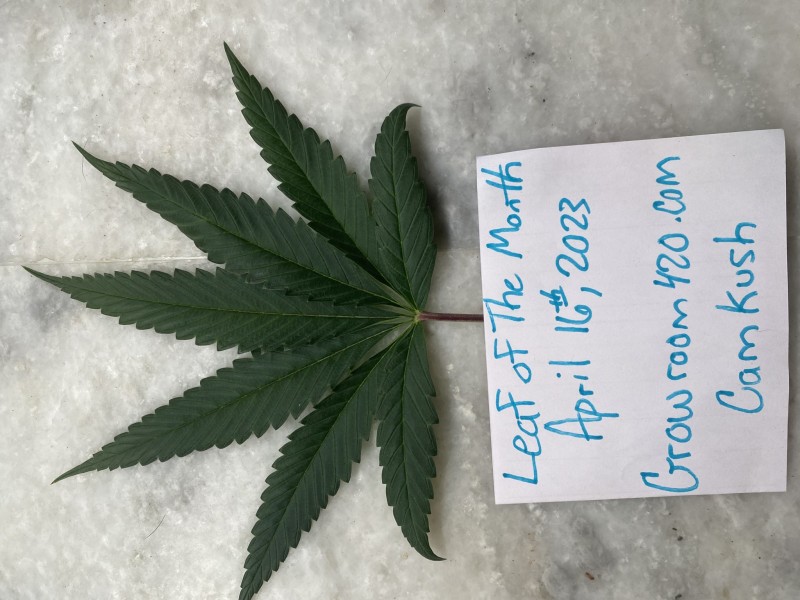 Leaf of The Month
April 16th, 2023
Growroom420.com
CamKush